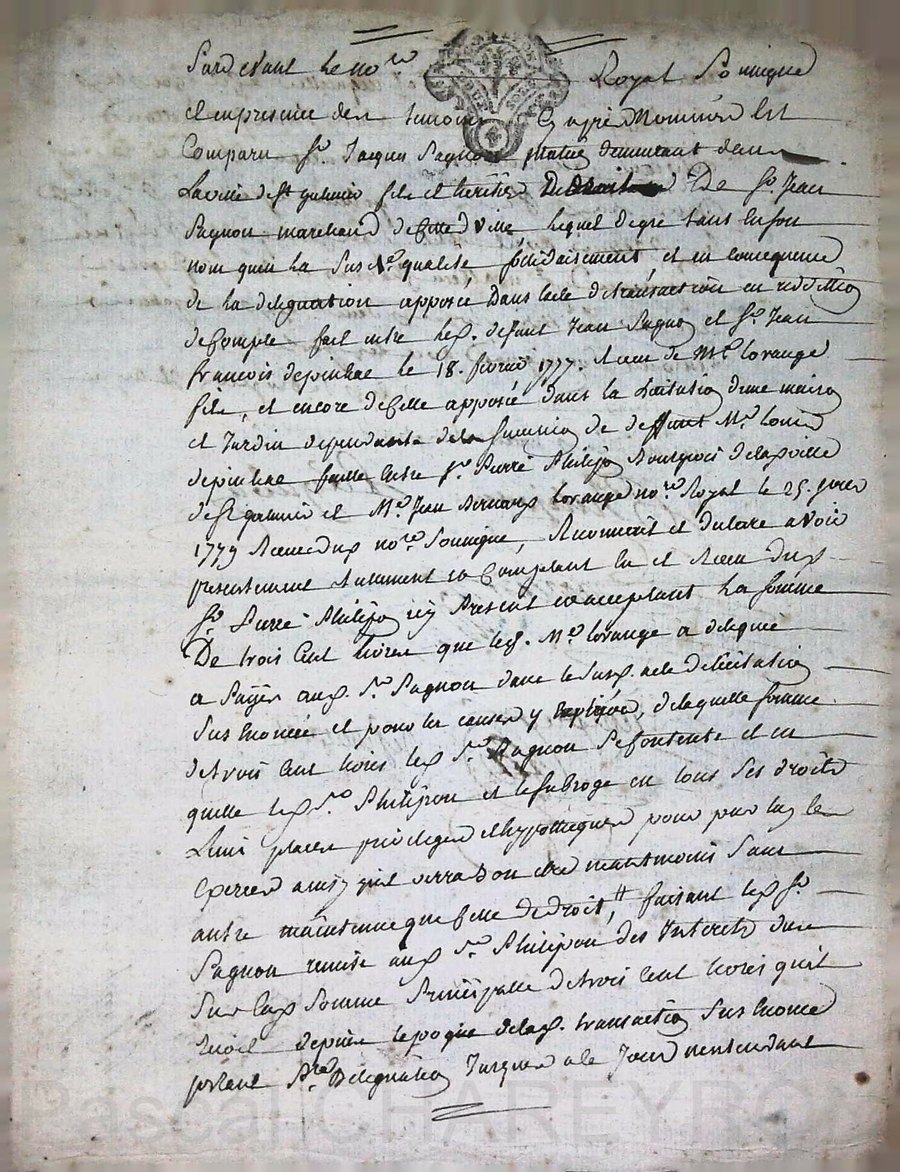 Pardevant le no.re Royal Soussigné
et en presence des temoins Cy apprès Nommés Est
Comparu Sr. Jacques Pagnon demeurant dans
La ville de St galmier fils et heritier De Sr. Jean
Pagnon marchand de cette d ville lequel de gré tant en son
nom qu'en la Sus de qualité et en consequence
de la delegation apposée Dans lacte de transaction en reddition
de Compte fait entre les. defunt Jean Pagnon et Sr. Jean
francois depinhac le 18. fevrier 1777. Receu de Me. lorange
fils, et encore de Celle apposée dans la Licitation d'une maison
et Jardin dependants de la Succession de deffunt Me. Louis
depinhac faitte Entre Sr. Pierre Philipon Bourgeois de la ville
de St galmier et Me. Jean Bernard lorange no.re Royal le 25.
1779 Receue du no.re Soussigné, Reconnoit et declare avoir
presentement et en Comptant Eu et Receu dud
Sr. Pierre Philipon icy Present et acceptant La somme
De trois Cent livres que led. Me. lorange a delegué
a Payer aud. Sr. Pagnon dans le Susd. acte de licitation
Sus Enoncée et pour les causes y Expliquées, de laquelle somme
de trois Cent livres led Sr. Pagnon Se Contente et en
quitte led Sr. Philipon et le Subroge en tous Ses droits
Lieux places privileges et hypotheques pour par luy les
Exercer ainsy qu'il verra bon être neantmoins Sans
autre maintenue que Celle de droit, faisant led Sr
Pagnon remise aud Sr. Philipon des Interets dus
Sur lad Somme Principalle de trois Cent livres qu'il
depuis lepoque de lad. transaction Sus Enoncé
portant Delegation Jusques a ce Jour n'entendant
Pascal CHAREYRON